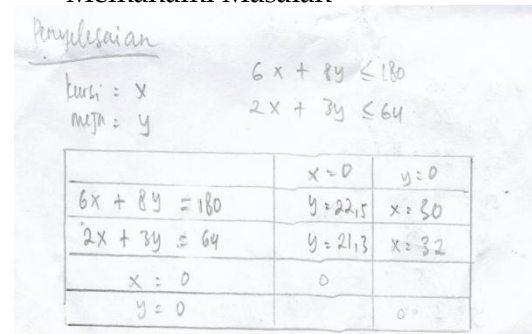 Memahami Masalah
Penyelesaian
kursi = x
meja = y
6x + 8y ≤ 180
2x + 3y ≤ 64
x = 0 y = 0
6x + 8y = 180 y = 22,5 x = 30
2x + 3y = 64 y = 21,3 x = 32
x = 0 0
y = 0 0